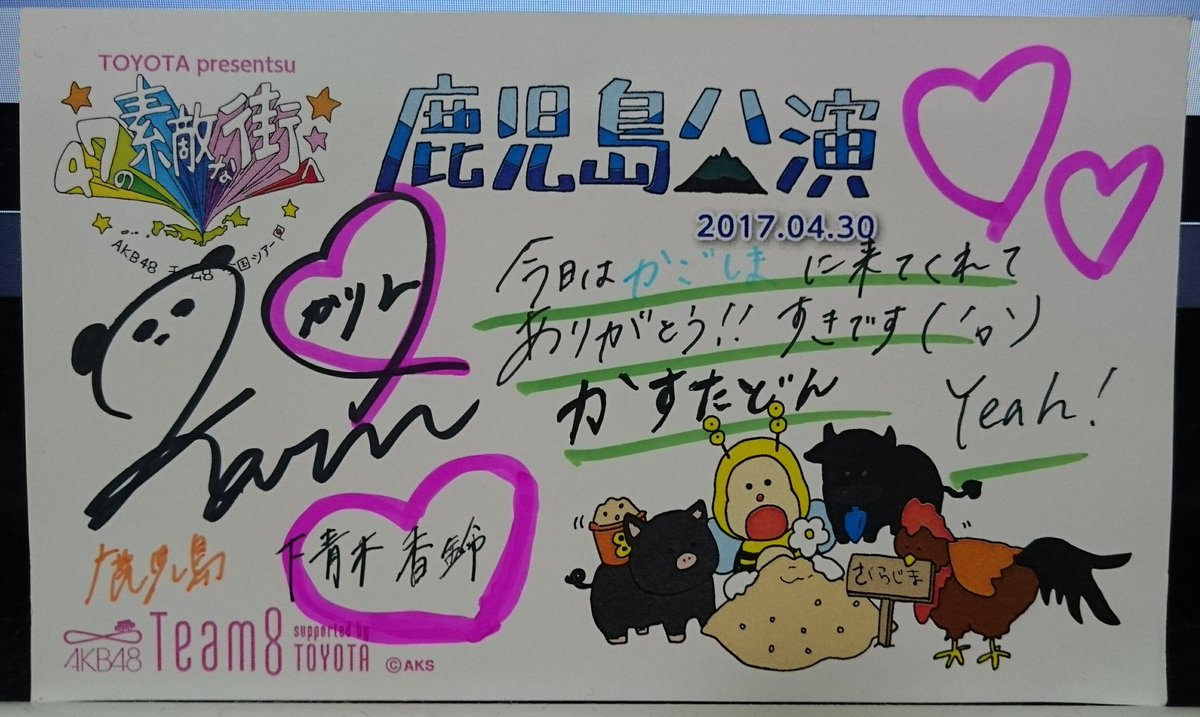 TOYOTA presentsu
47の素敵な街へ
AKB48
48
国ツアー
鹿児島公演
2017.04.30
今日はかごしまに来てくれて
ありがとう!! すきです('ロ')
かすたどん Yeah!
かりん
Karin
鹿児島
下青木香鈴
さくらじま
8
AKB48 Team8 supported by TOYOTA
©AKS